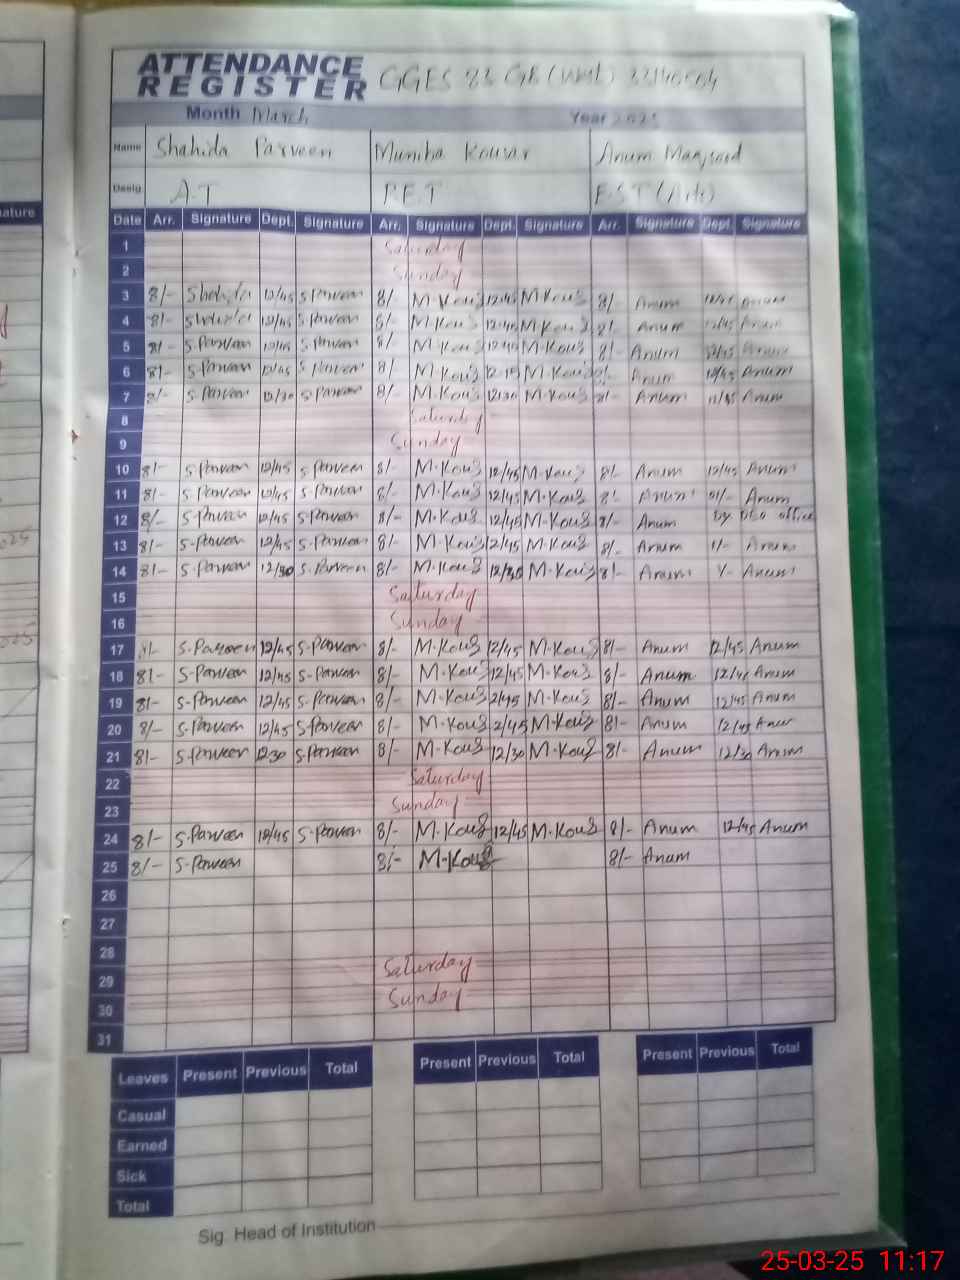 ATTENDANCE
REGISTER
GGES 83 GB (West)
Month March Year
Name Shahida Parveen Muniba Kousar Anum Maqsood
Desig. A.T P.E.T E.S.T (Arts)
Date Arr. Signature Dept. Signature Arr. Signature Dept. Signature Arr. Signature Dept. Signature
1 Saturday
2 Sunday
3 8/- Shahida 12/45 S.Parveen 8/- M.Kous 12:45 M.Kous 8/- Anum 12/45 Anum
4 8/- 12/45 S.Parveen 8/- M.Kous 12:45 M.Kous 8/- Anum 12/45 Anum
5 8/- S.Parveen 12/45 S.Parveen 8/- M.Kous 12:45 M.Kous 8/- Anum 12/45 Anum
6 8/- S.Parveen 12/45 S.Parveen 8/- M.Kous M.Kous 8/- Anum 12/45 Anum
7 8/- S.Parveen 12/30 S.Parveen 8/- M.Kous 12:30 M.Kous 8/- Anum Anum
8 Saturday
9 Sunday
10 8/- S.Parveen 12/45 S.Parveen 8/- M.Kous 12/45 M.Kous 8/- Anum 12/45 Anum
11 8/- S.Parveen 12/45 S.Parveen 8/- M.Kous 12/45 M.Kous 8/- Anum Anum
12 8/- S.Parveen 12/45 S.Parveen 8/- M.Kous 12/45 M.Kous 8/- Anum office
13 8/- S.Parveen 12/45 S.Parveen 8/- M.Kous 12/45 M.Kous 8/- Anum 1/- Anum
14 8/- S.Parveen 12/30 S.Parveen 8/- M.Kous 12/30 M.Kous 8/- Anum Anum
15 Saturday
16 Sunday
17 8/- S.Parveen 12/45 S.Parveen 8/- M.Kous 12/45 M.Kous 8/- Anum 12/45 Anum
18 8/- S.Parveen 12/45 S.Parveen 8/- M.Kous 12/45 M.Kous 8/- Anum 12/45 Anum
19 8/- S.Parveen 12/45 S.Parveen 8/- M.Kous 2/45 M.Kous 8/- Anum 12/45 Anum
20 8/- S.Parveen 12/45 S.Parveen 8/- M.Kous 2/45 M.Kous 8/- Anum 12/45 Anum
21 8/- S.Parveen 12:30 S.Parveen 8/- M.Kous 12/30 M.Kous 8/- Anum 12/30 Anum
22 Saturday
23 Sunday
24 8/- S.Parveen 12/45 S.Parveen 8/- M.Kous 12/45 M.Kous 8/- Anum 12/45 Anum
25 8/- S.Parveen 8/- M.Kous 8/- Anum
26
27
28
29 Saturday
30 Sunday
31
Leaves Present Previous Total Present Previous Total Present Previous Total
Casual
Earned
Sick
Total
Sig. Head of Institution
25-03-25 11:17